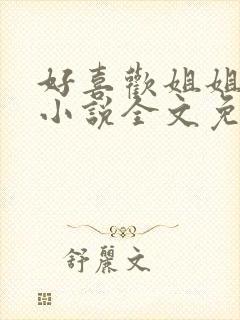 好喜歡姐姐
小說全文免
舒麗文